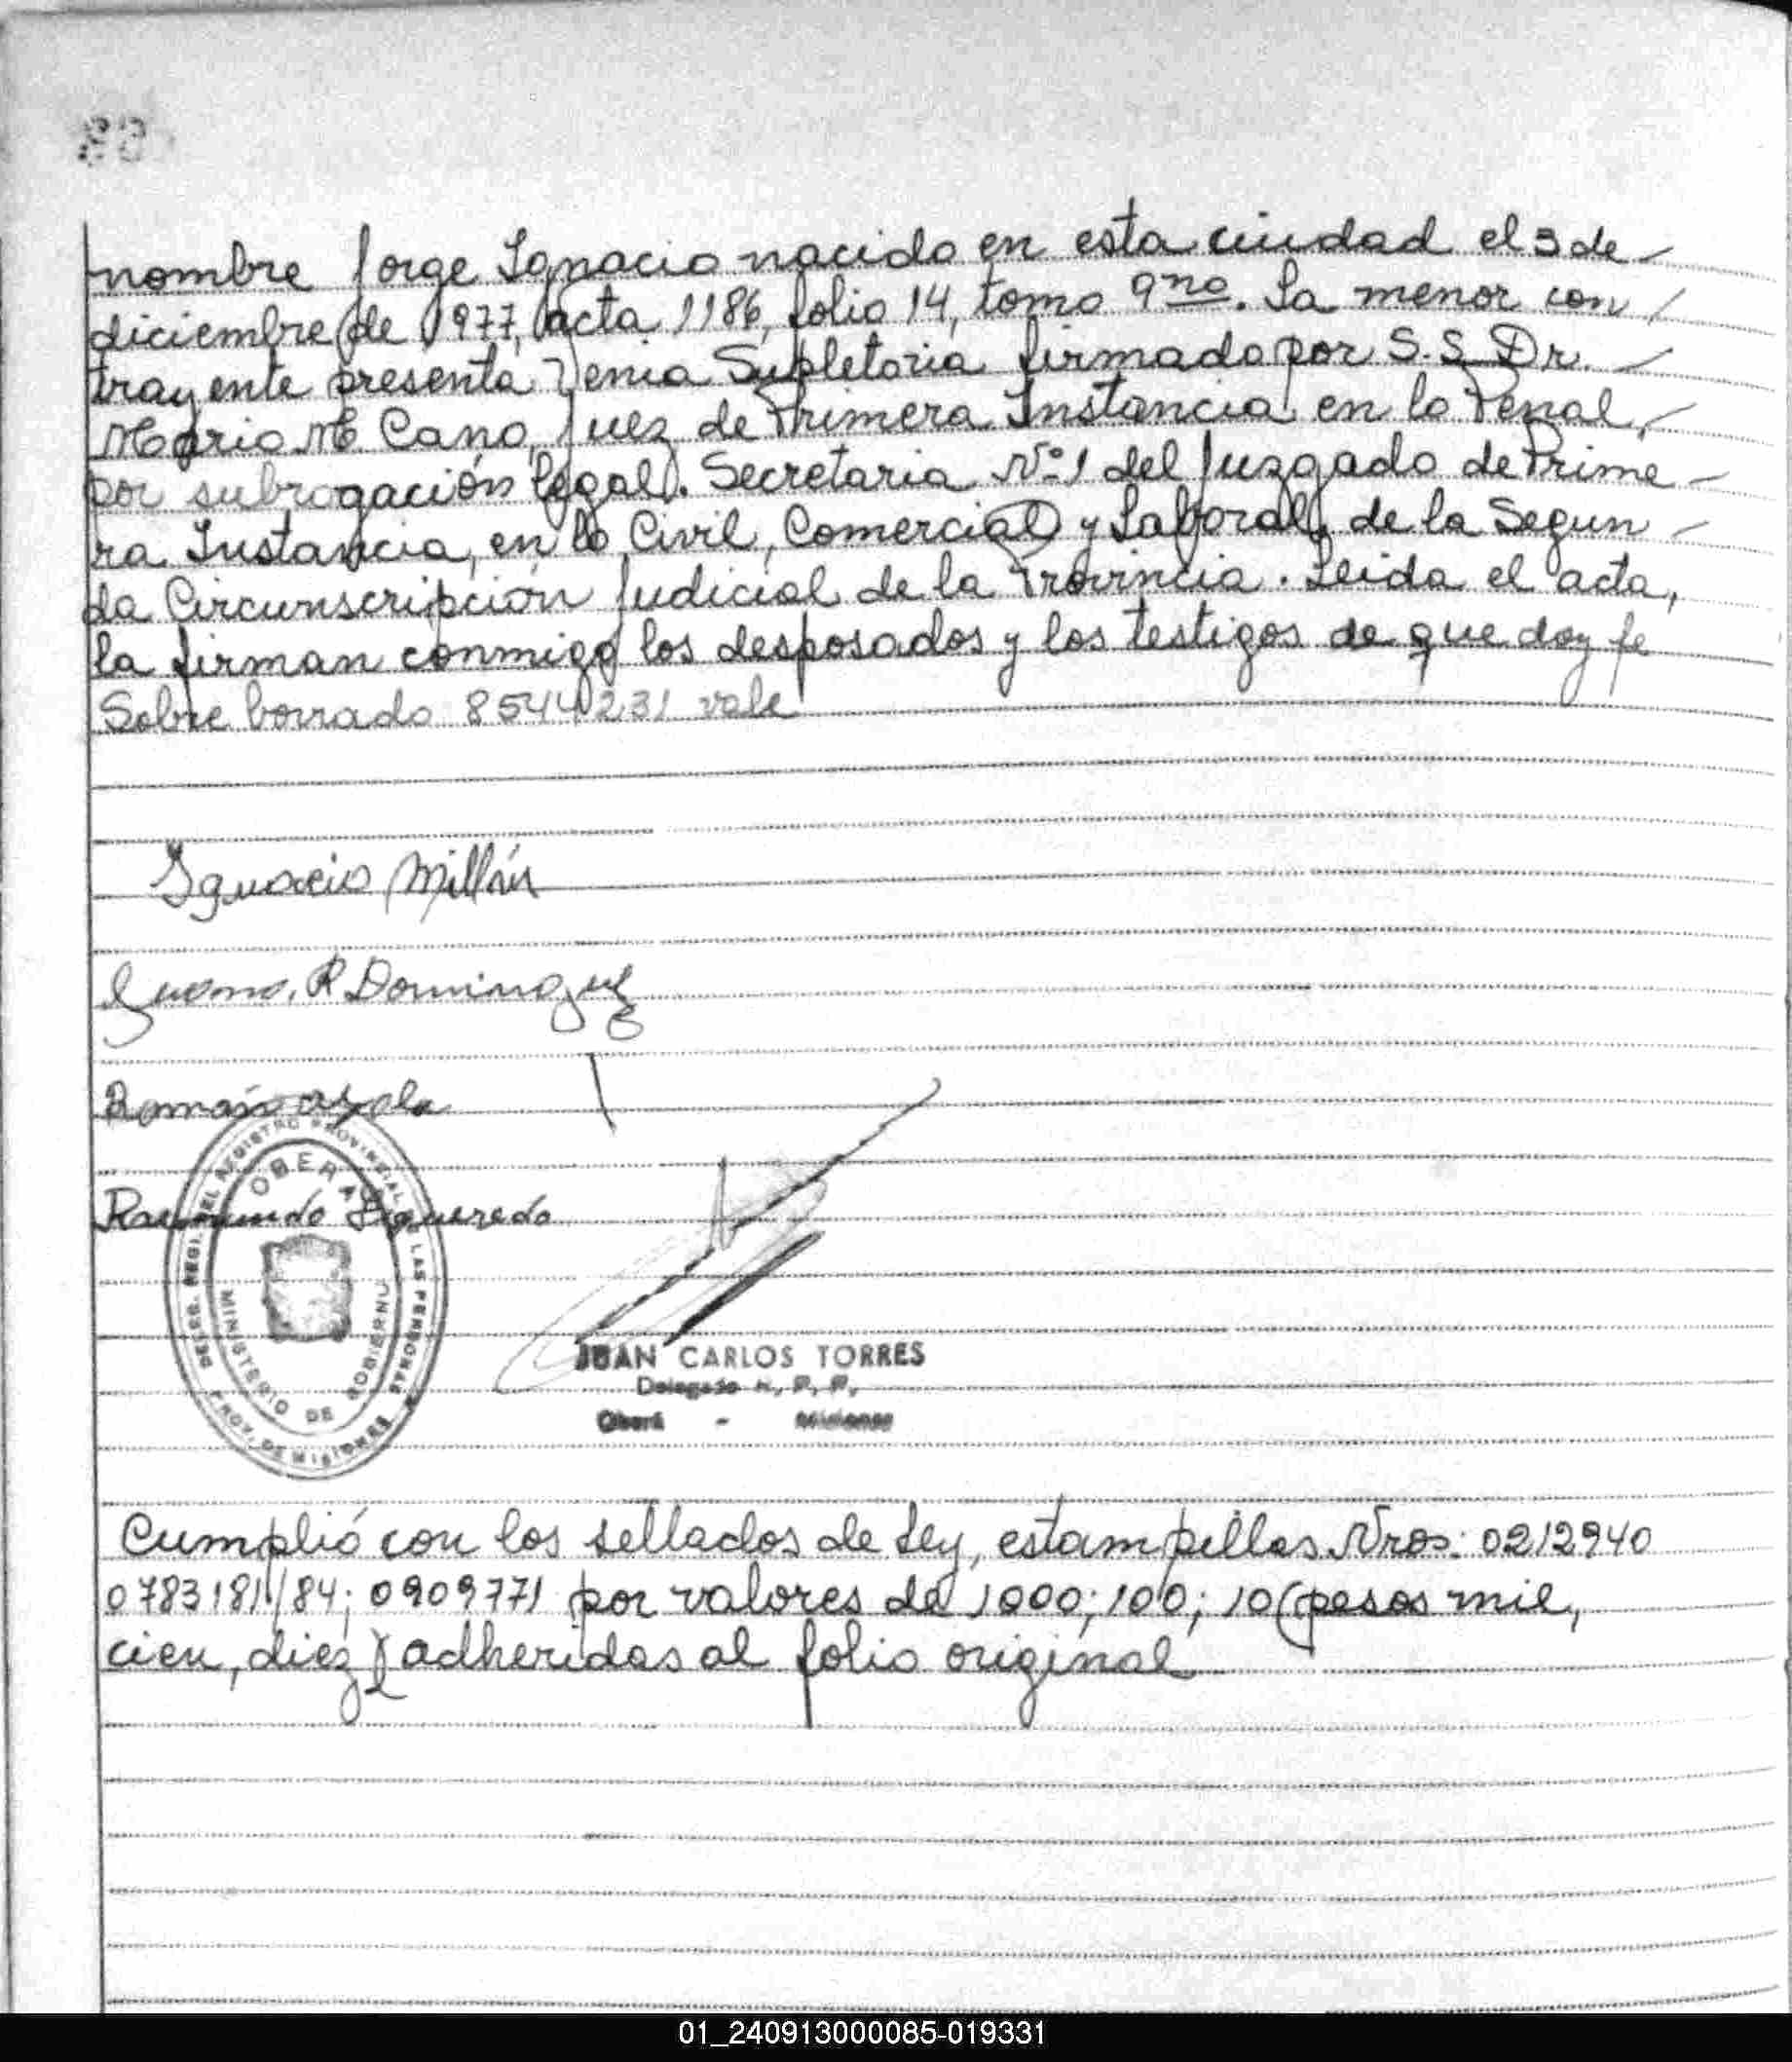 nombre Jorge Ignacio nacido en esta ciudad el 3 de
diciembre de 1977, acta 1186, folio 14, tomo 9no. La menor con
trayente presenta Venia Supletoria firmado por S.S Dr.
Mario M. Cano, Juez de Primera Instancia en lo Penal,
por subrogación legal. Secretaria Nº 1 del Juzgado de Prime
ra Instancia, en lo Civil, Comercial y Laboral, de la Segun
da Circunscripción Judicial de la Provincia. Leida el acta,
la firman conmigo los desposados y los testigos de que doy fe
Sobre borrado 8544231 vale
Ignacio Millán
R Dominguez
Román Ayala
Raimundo Figueredo
DELEG. REGL. DEL REGISTRO PROVINCIAL DE LAS PERSONAS
OBERA
MINISTERIO DE GOBIERNO
PROV. DE MISIONES
JUAN CARLOS TORRES
Delegado R. P. P.
Oberá - Misiones
Cumplió con los sellados de Ley, estampillas Nros: 0212940
0783181/84; 0909771 por valores de 1000; 100; 10 (pesos mil,
cien, diez) adheridas al folio original
01_240913000085-019331